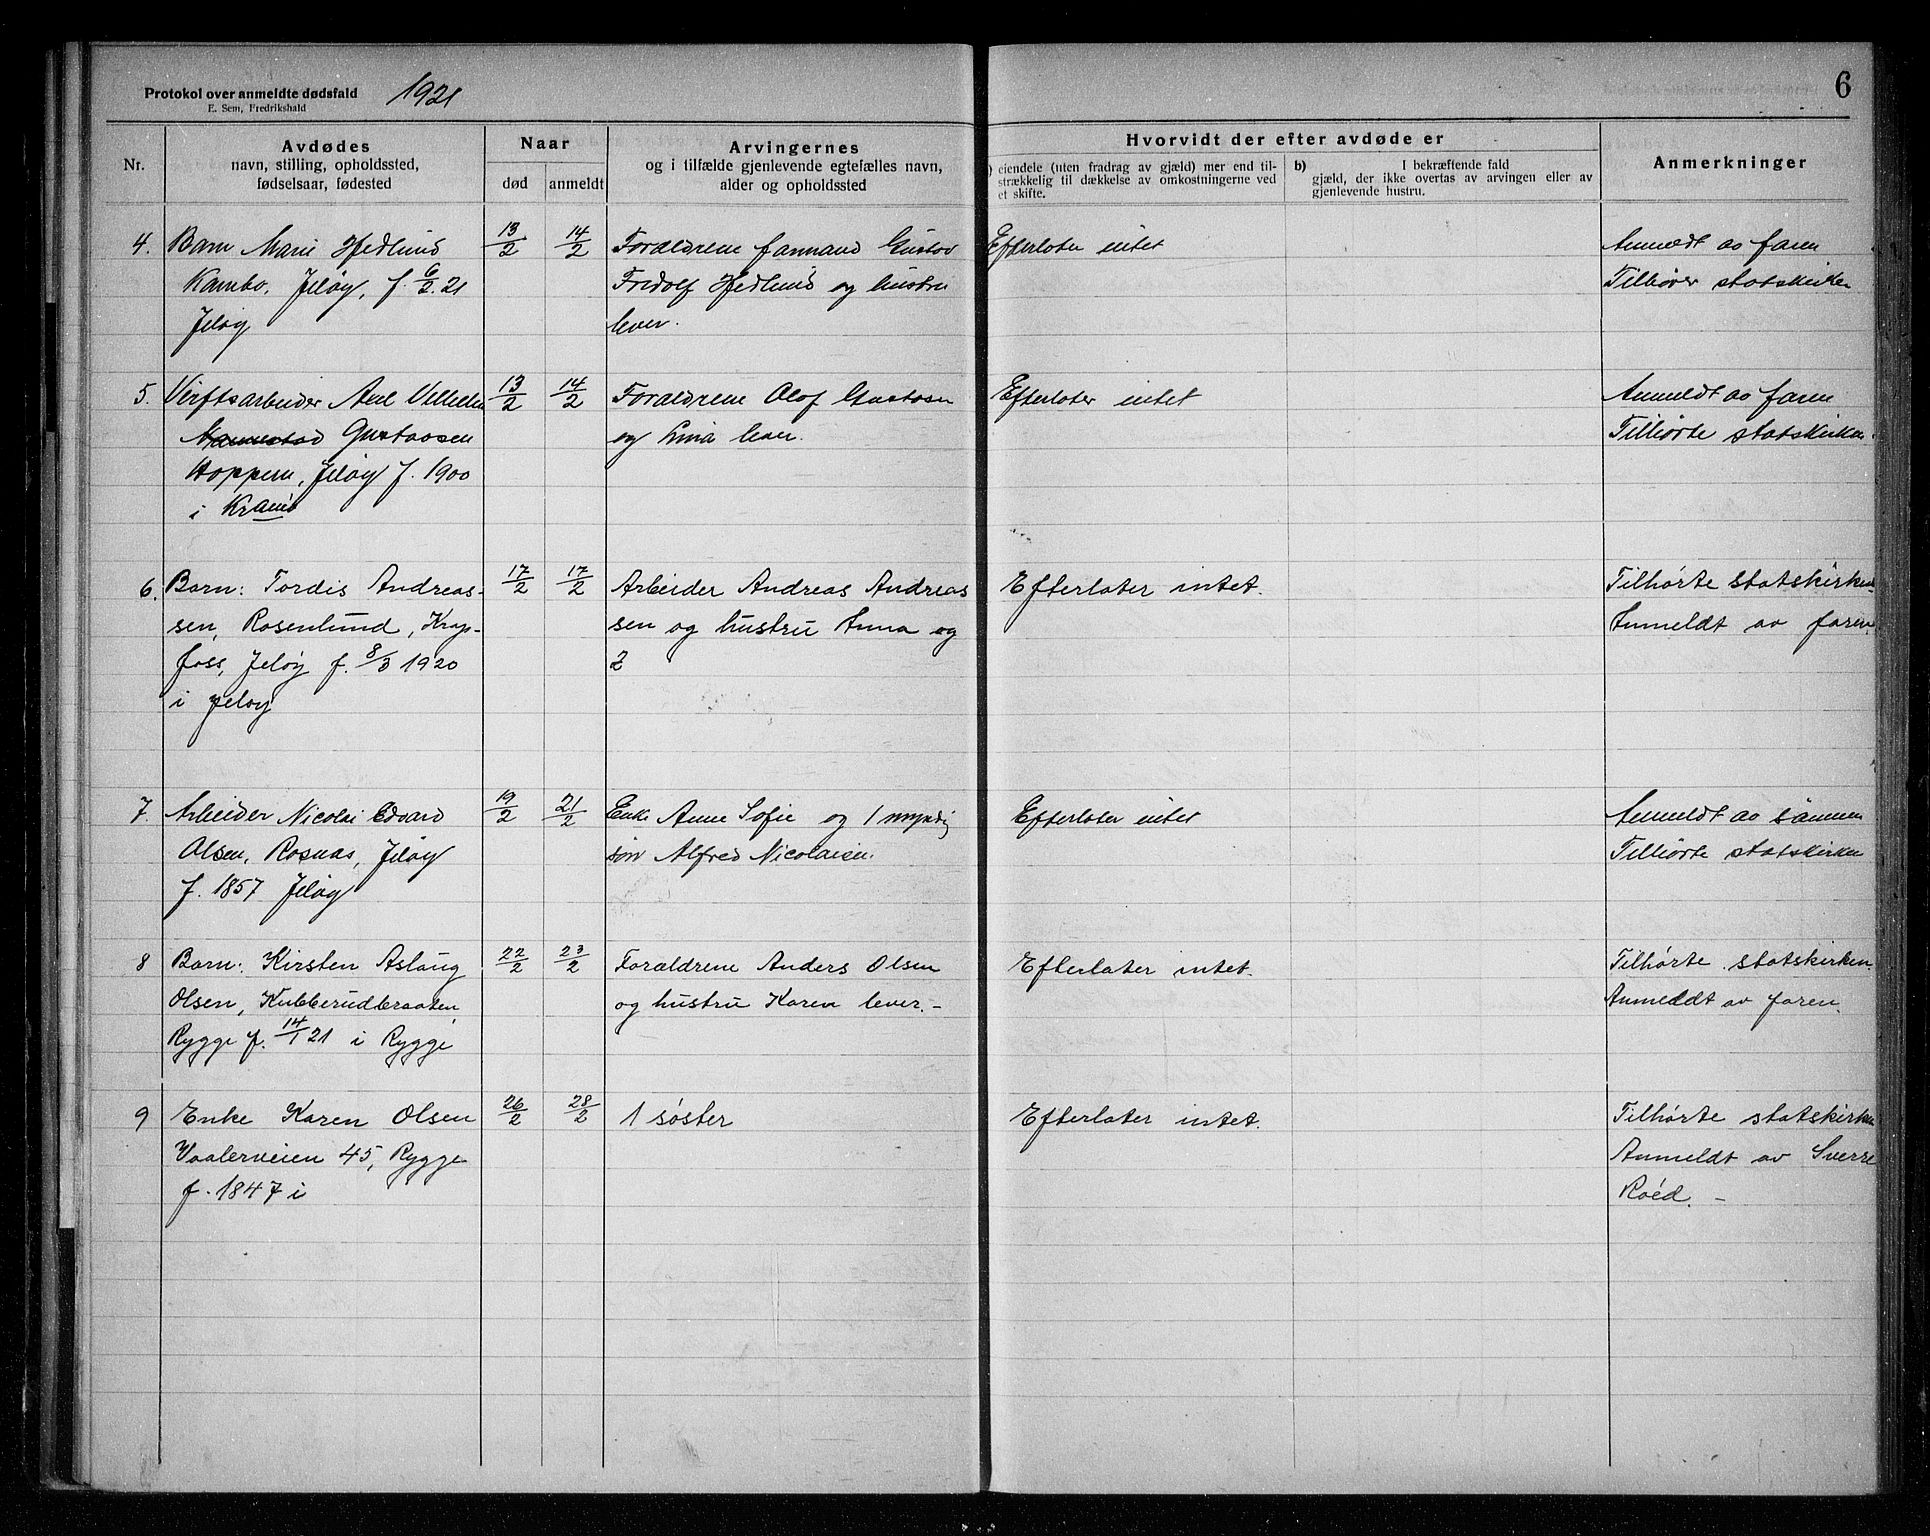 Protokol over anmeldte dødsfald
E. Sem, Fredrikshald
1921
6
Nr.
Avdødes
navn, stilling, opholdssted,
fødselsaar, fødested
Naar
død
anmeldt
Arvingernes
og i tilfælde gjenlevende egtefælles navn,
alder og opholdssted
Hvorvidt der efter avdøde er
) eiendele (uten fradrag av gjæld) mer end til-
strækkelig til dækkelse av omkostningerne ved
et skifte.
b) I bekræftende fald
gjæld, der ikke overtas av arvingen eller av
gjenlevende hustru.
Anmerkninger
4. Barn Marie Hedlund 13/2 14/2 Forældrene Gustav Efterlater intet Anmeldt av faren
Kambo, Jeløy, f. 6/2.21 Fridolf Hedlund og hustru Tilhører statskirken
Jeløy lever.
5. Verftsarbeider Axel Vilhelm 13/2 14/2 Forældrene Olof Gustavsen Efterlater intet Anmeldt av faren
Gustavsen og Lina lever. Tilhørte statskirken
Hoppern, Jeløy f. 1900
i Krania
6. Barn: Tordis Andreas- 17/2 17/2 Arbeider Andreas Andreas Efterlater intet. Tilhørte statskirken
sen, Rosenlund, Krap- sen og hustru Anna og Anmeldt av faren
foss, Jeløy f. 8/3 1920 2
i Jeløy
7. Arbeider Nicolai Edvard 19/2 21/2 Enke Anne Sofie og 1 myndig Efterlater intet Anmeldt av sønnen
Olsen, Rosnæs, Jeløy søn Alfred Nicolaisen. Tilhørte statskirken
f. 1857 Jeløy
8 Barn: Kirsten Aslaug 22/2 23/2 Forældrene Anders Olsen Efterlater intet. Tilhørte statskirken.
Olsen, Kubberudbraaten, og hustru Karen lever.- Anmeldt av faren.
Rygge f. 14/1 21 i Rygge
9 Enke Karen Olsen 26/2 28/2 1 søster Efterlater intet. Tilhørte statskirken
Vaalerveien 45, Rygge Anmeldt av Sverre
f. 1847 i Roéd. -